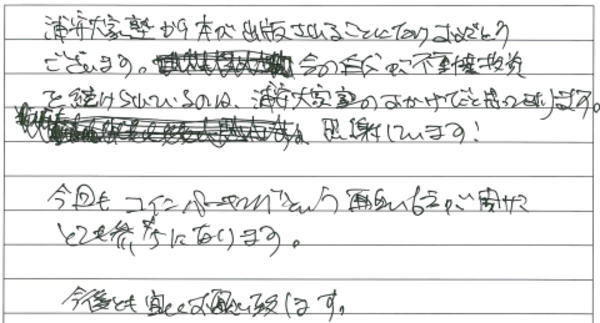 浦安大家塾から本が出版されることになりおめでとう
ございます。今の自分が不動産投資
を続けられているのは、浦安大家塾のおかげだと思っております。
感謝しています!
今回もコインパーキングという面白い話が聞けて
とても参考になります。
今後とも宜しくお願い致します。